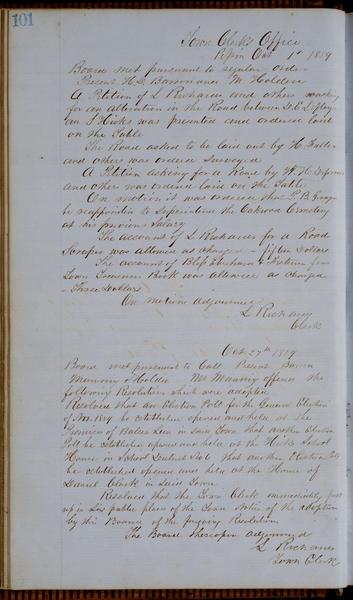 101
Town Clerk's Office
Ripon Oct 1st 1859
Board met pursuant to regular order
Present H.S. Barron and W. Holden
A Petition of L Richards and others asking
for an alteration in the Road between
an Hicks was presented and ordered laid
on the Table
The Road asked to be laid out by H.
and others was ordered Surveyed
A Petition asking for a Road by W. H.
and others was ordered laid on the Table
On motion it was ordered that P. B.
be reappointed to Superintend the Oakwood Cemetery
at his previous Salary
The account of L Richards for a Road
Scraper was allowed as charged - fifteen Dollars
The account of for
Town Treasurer Book was allowed as charged
- Three Dollars
On Motion adjourned
L Richards
Clerk
Oct 27th 1859
Board met pursuant to Call Present Barron
Manning & Holden Mr Manning offered the
following Resolutions which were adopted
Resolved that an Election Poll for the General Election
of Nov. 1859 be established opened and held at the
in said Town that another Election
Poll be established opened and held at the Hicks School
House in School District No 6 that another Election Poll
be established opened and held at the House of
Daniel Clark in said Town
Resolved that the Town Clerk immediately post
up in Six public places of the Town Notice of the adoption
by this Board of the forgoing Resolution
The Board thereupon adjourned
L Richards
Town Clerk